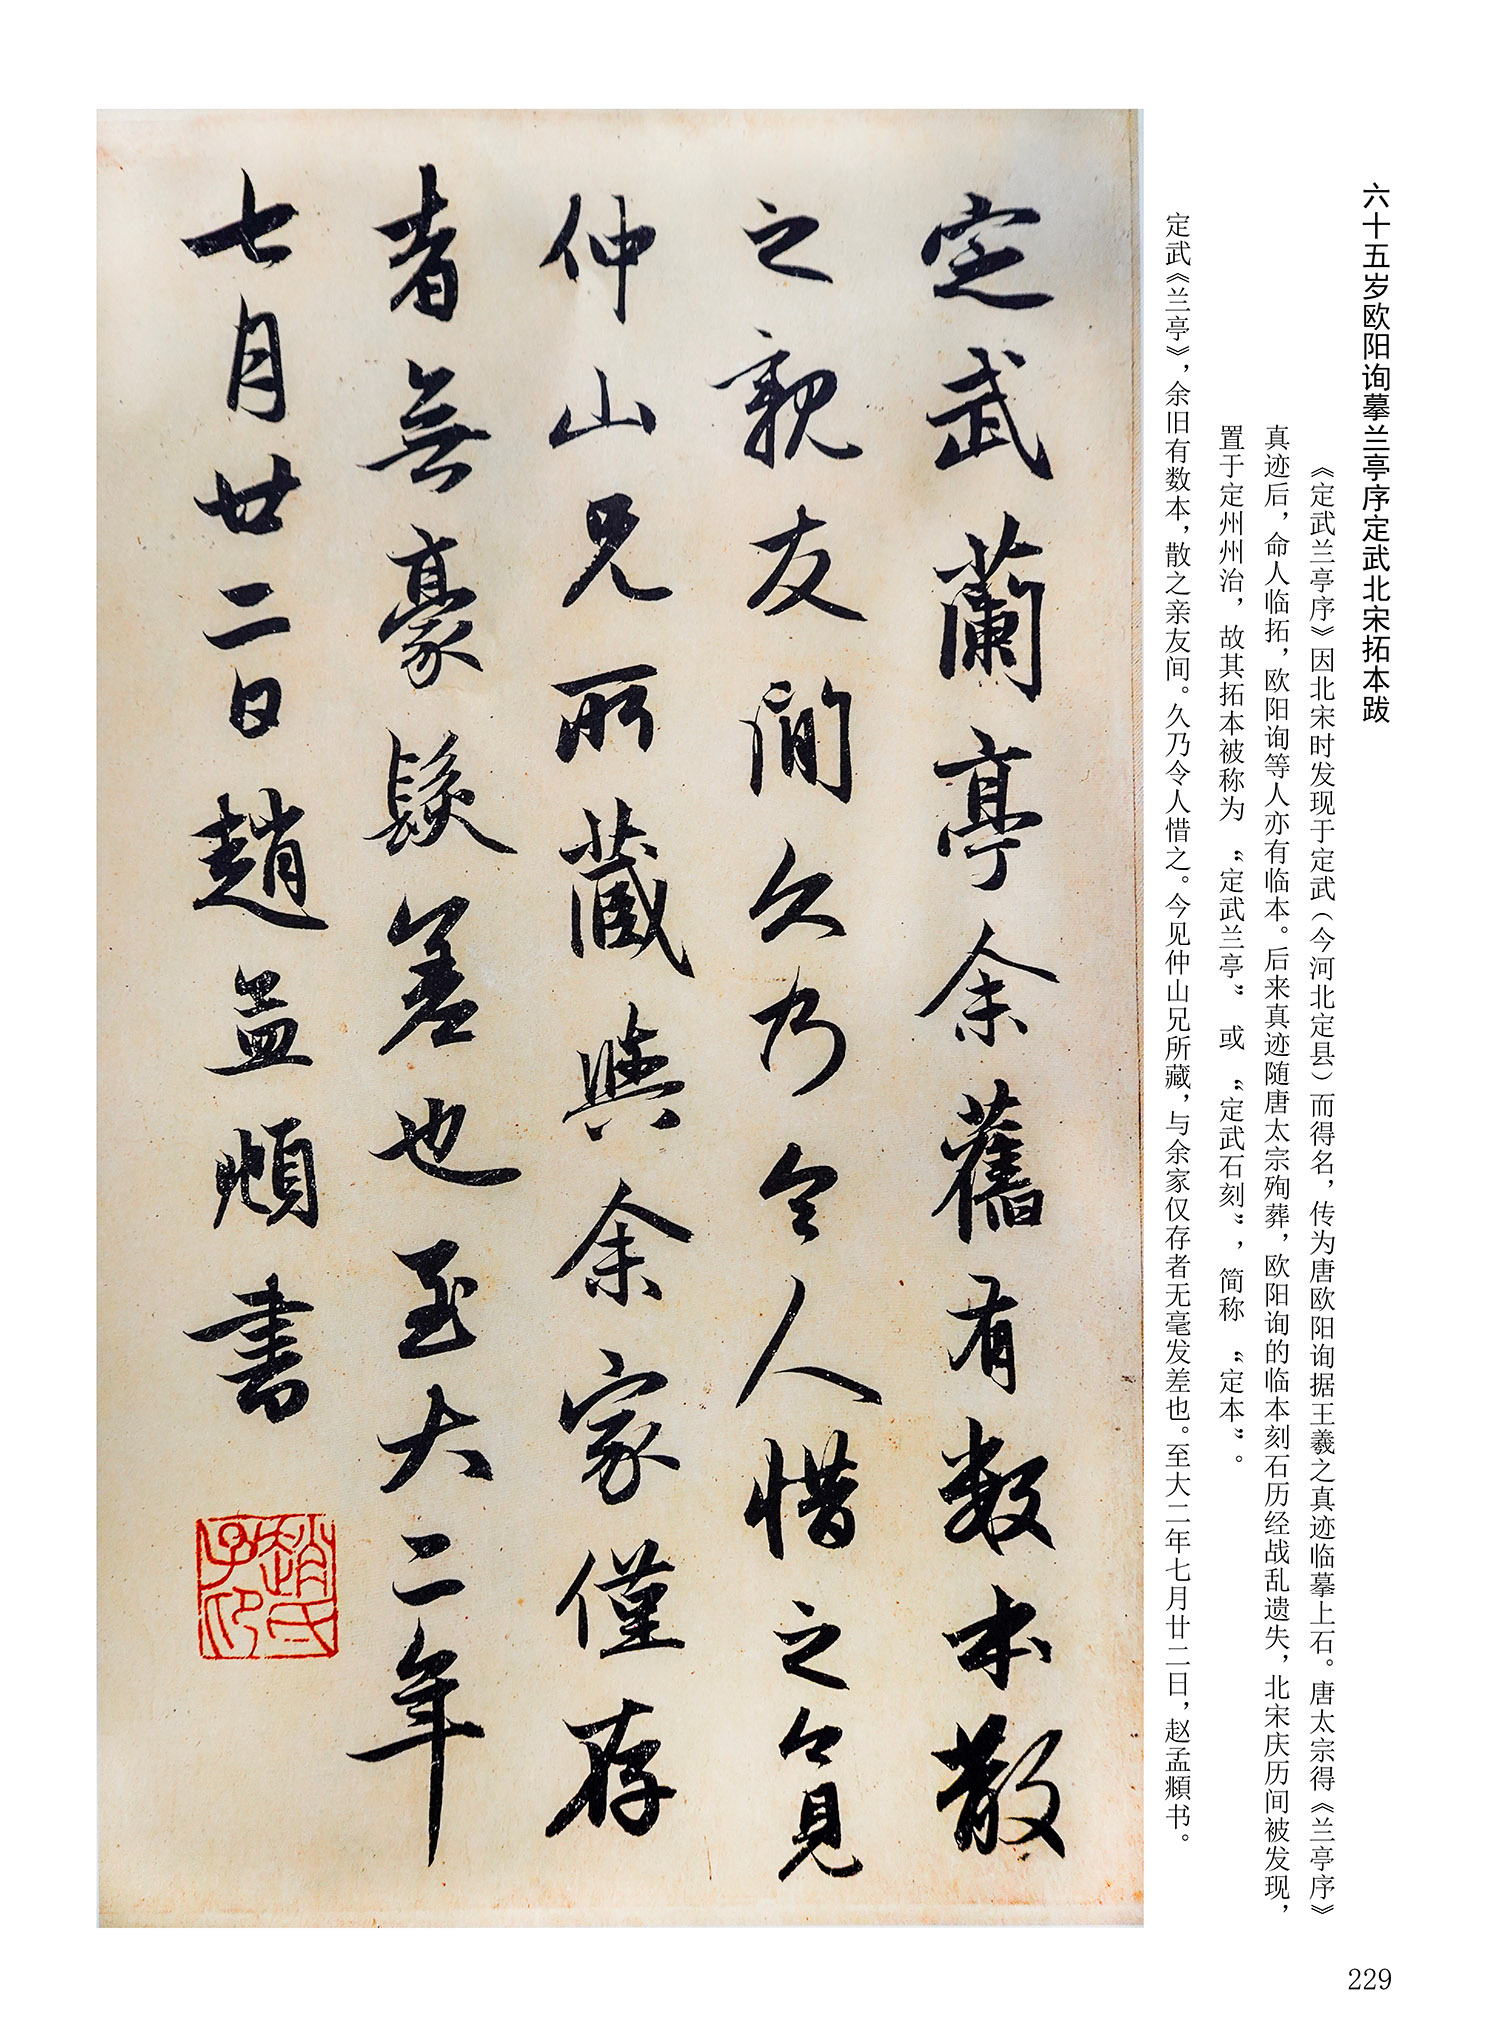 六十五岁欧阳询摹兰亭序定武北宋拓本跋
《定武兰亭序》因北宋时发现于定武（今河北定县）而得名，传为唐欧阳询据王羲之真迹临摹上石。唐太宗得《兰亭序》
真迹后，命人临拓，欧阳询等人亦有临本。后来真迹随唐太宗殉葬，欧阳询的临本刻石历经战乱遗失，北宋庆历间被发现，
置于定州州治，故其拓本被称为“定武兰亭”或“定武石刻”，简称“定本”。
定武《兰亭》，余旧有数本，散之亲友间。久乃令人惜之。今见仲山兄所藏，与余家仅存者无毫发差也。至大二年七月廿二日，赵孟頫书。
定武蘭亭余舊有数本散
之親友間久乃令人惜之今見
仲山兄所藏與余家僅存
者無豪髮差也至大二年
七月廿二日趙孟頫書
趙氏
子印
229